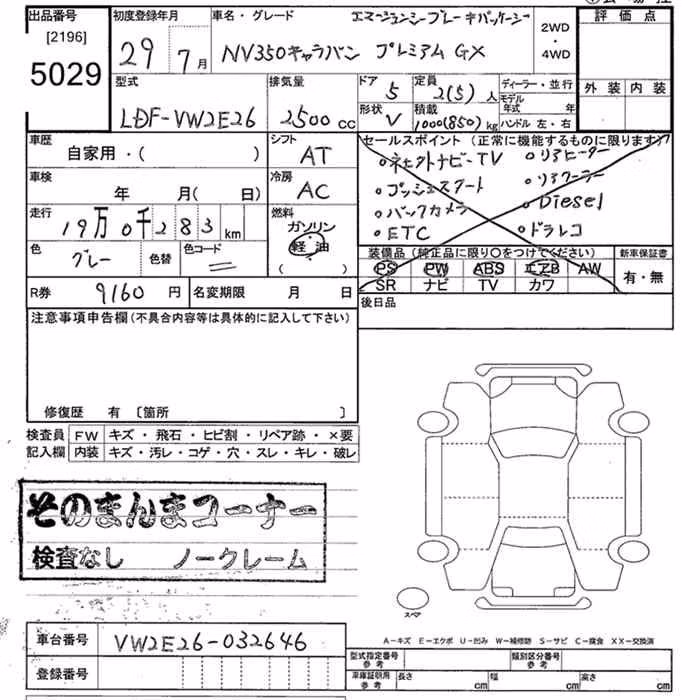 出品番号
[2196]
5029
初度登録年月
29年 7月
車名・グレード
エマージェンシーブレーキパッケージ
NV350キャラバン プレミアム GX
2WD
・
4WD
評価点
外装 内装
型式
LDF-VW2E26
排気量
2500 CC
ドア
5
定員
2(5)人
形状
V
積載
1000(850)kg
ディーラー・並行
モデル年式 年
ハンドル 左・右
車歴
自家用・( )
シフト
AT
車検
年 月( 日)
冷房
AC
走行
19万0千283 km
燃料
ガソリン
軽油
( )
色
グレー
色替
色コード
R券
9160 円
名変期限 月 日
セールスポイント (正常に機能するものに限ります)
コネクトナビ-TV
リアヒーター
プッシュスタート
リアクーラー
バックカメラ
Diesel
ETC
ドラレコ
装備品(純正品に限り○をつけてください)
新車保証書
PS PW ABS エアB AW
SR ナビ TV カワ
有・無
後日品
注意事項申告欄(不具合内容等は具体的に記入して下さい)
修復歴 有 〔箇所 〕
検査員記入欄
FW キズ・飛石・ヒビ割・リペア跡・×要
内装 キズ・汚レ・コゲ・穴・スレ・キレ・破レ
そのまんまコーナー
検査なし ノークレーム
スペア
A-キズ E-エクボ U-凹み W-補修跡 S-サビ C-腐食 XX-交換済
車台番号
VW2E26-032646
登録番号
型式指定番号 参考
類別区分番号 参考
車庫証明用 参考
長さ cm
幅 cm
高さ cm